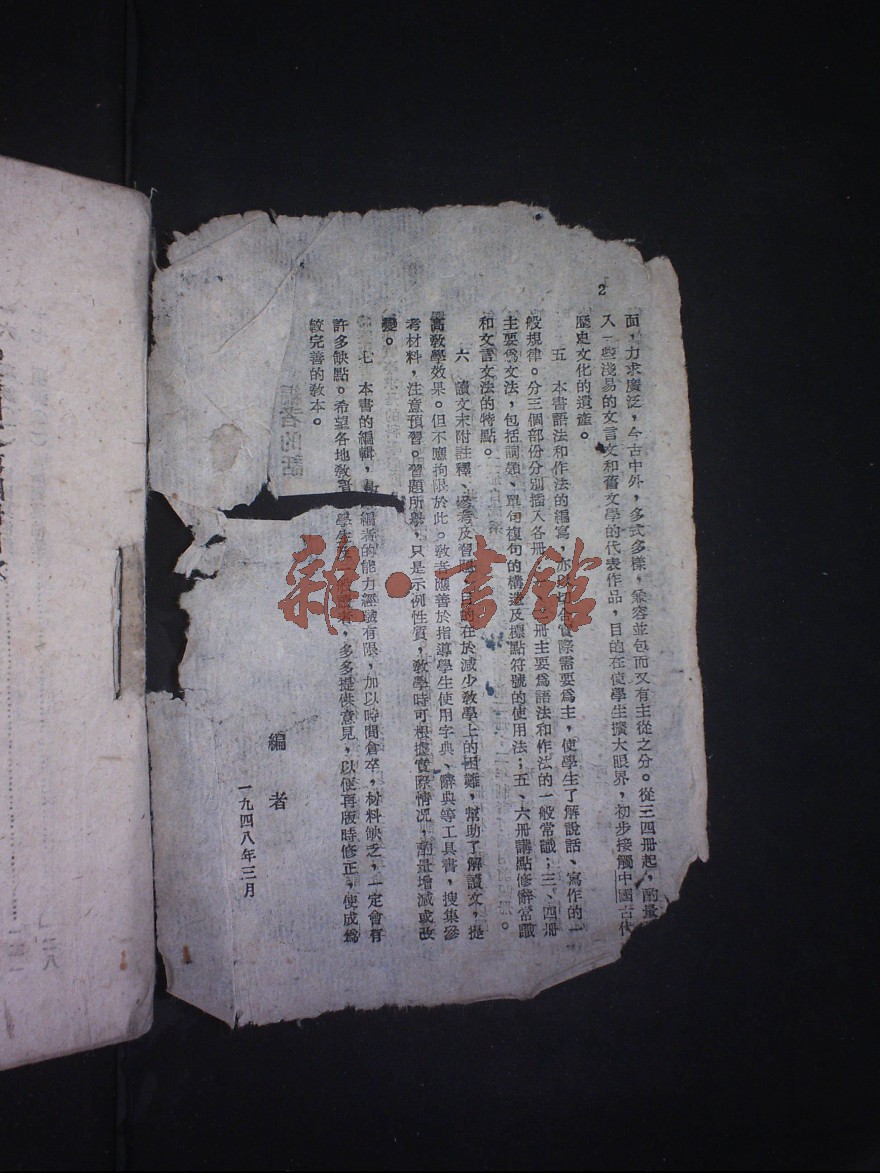 2
面，力求廣泛，今古中外，多式多樣，兼容並包而又有主從之分。從三四冊起，酌量
入一些淺易的文言文和舊文學的代表作品，目的在使學生擴大眼界，初步接觸中國古代
歷史文化的遺產。
五　本書語法和作法的編寫，亦以切合實際需要爲主，使學生了解說話、寫作的一
般規律。分三個部份分別插入各冊，冊主要爲語法和作法的一般常識；三、四冊
主要爲文法，包括詞類、單句複句的構造及標點符號的使用法；五、六冊講點修辭常識
和文言文法的特點。
六　讀文末附註釋、參考及習題，目的在於減少教學上的困難，幫助了解讀文，提
高教學效果。但不應拘限於此。教者應善於指導學生使用字典、辭典等工具書，搜集參
考材料，注意預習。習題所舉，只是示例性質，教學時可根據實際情况，酌量增減或改
變。
七　本書的編輯，編者的能力經驗有限，加以時間倉卒，材料缺乏，一定會有
許多缺點。希望各地教學生及一般讀者，多多提供意見，以便再版時修正，使成爲
較完善的教本。
編者
一九四八年三月
編者的話
雜·書館
二八